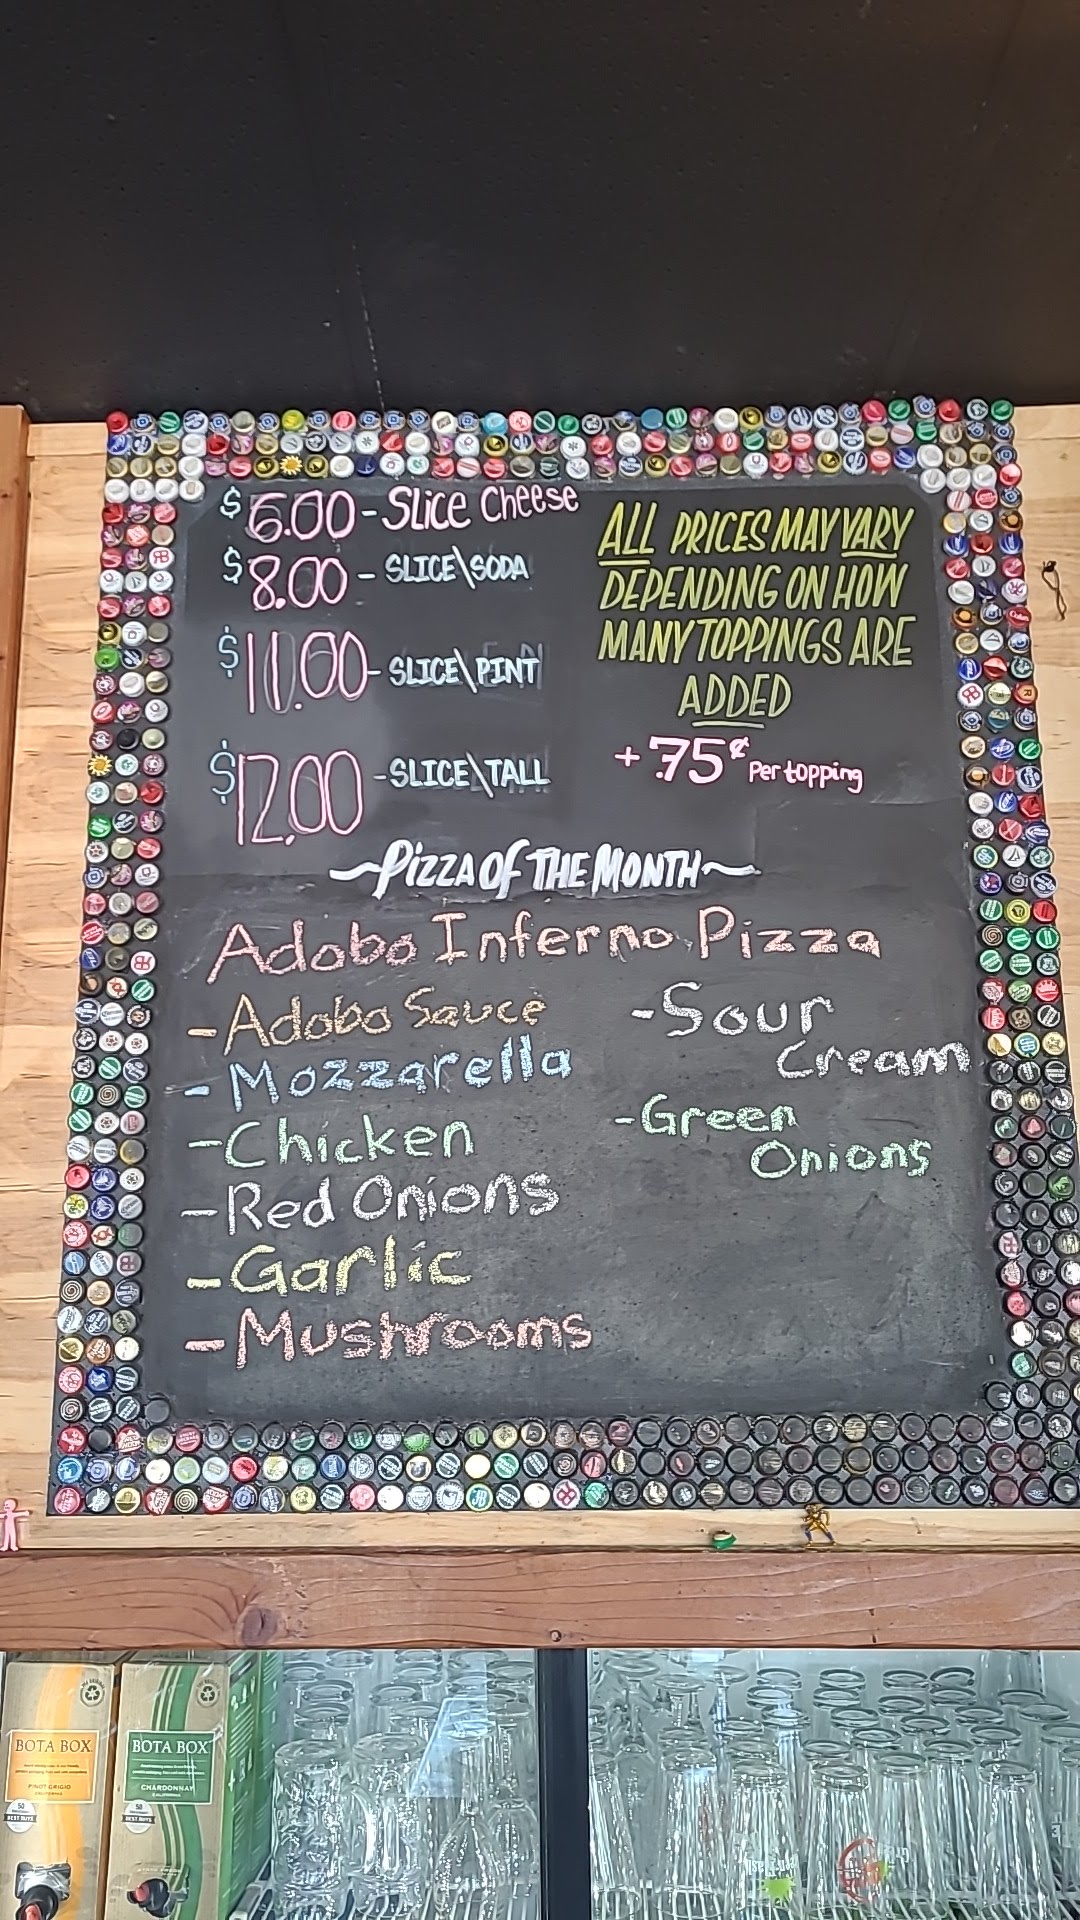 $6.00 - Slice Cheese
$8.00 - SLICE\SODA
$11.00 - SLICE\PINT
$12.00 - SLICE\TALL
ALL PRICES MAY VARY
DEPENDING ON HOW
MANY TOPPINGS ARE
ADDED
+ .75¢ Per topping
~PIZZA OF THE MONTH~
Adobo Inferno Pizza
- Adobo Sauce
- Mozzarella
- Chicken
- Red Onions
- Garlic
- Mushrooms
- Sour
Cream
- Green
Onions
BOTA BOX
PINOT GRIGIO
CALIFORNIA
50
BEST BUYS
BOTA BOX
CHARDONNAY
CALIFORNIA
50
BEST BUYS